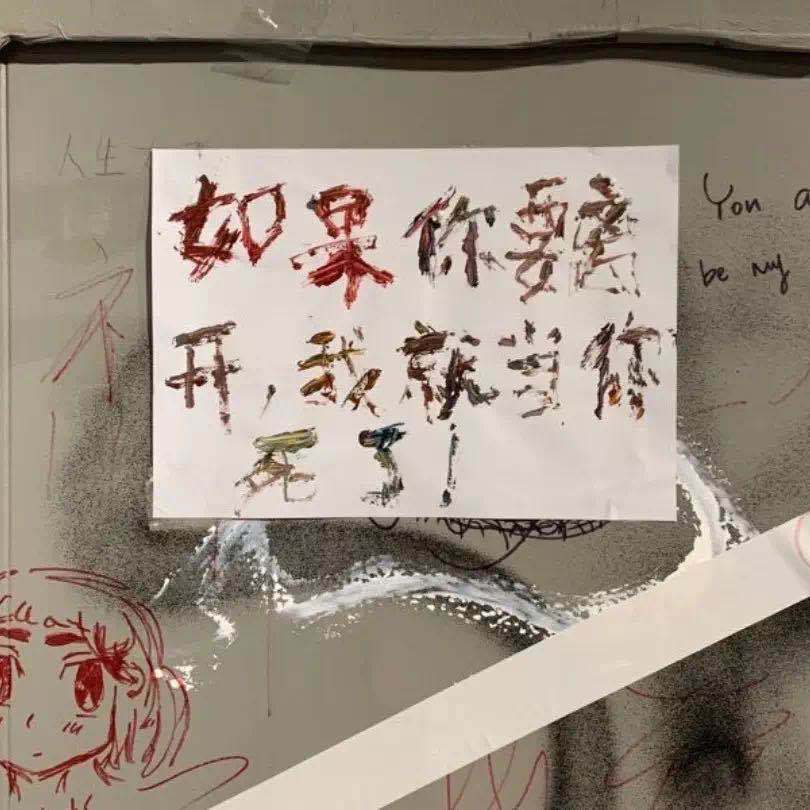 人生
如果你要离
开,我就当你
死了!
You a
be my
不